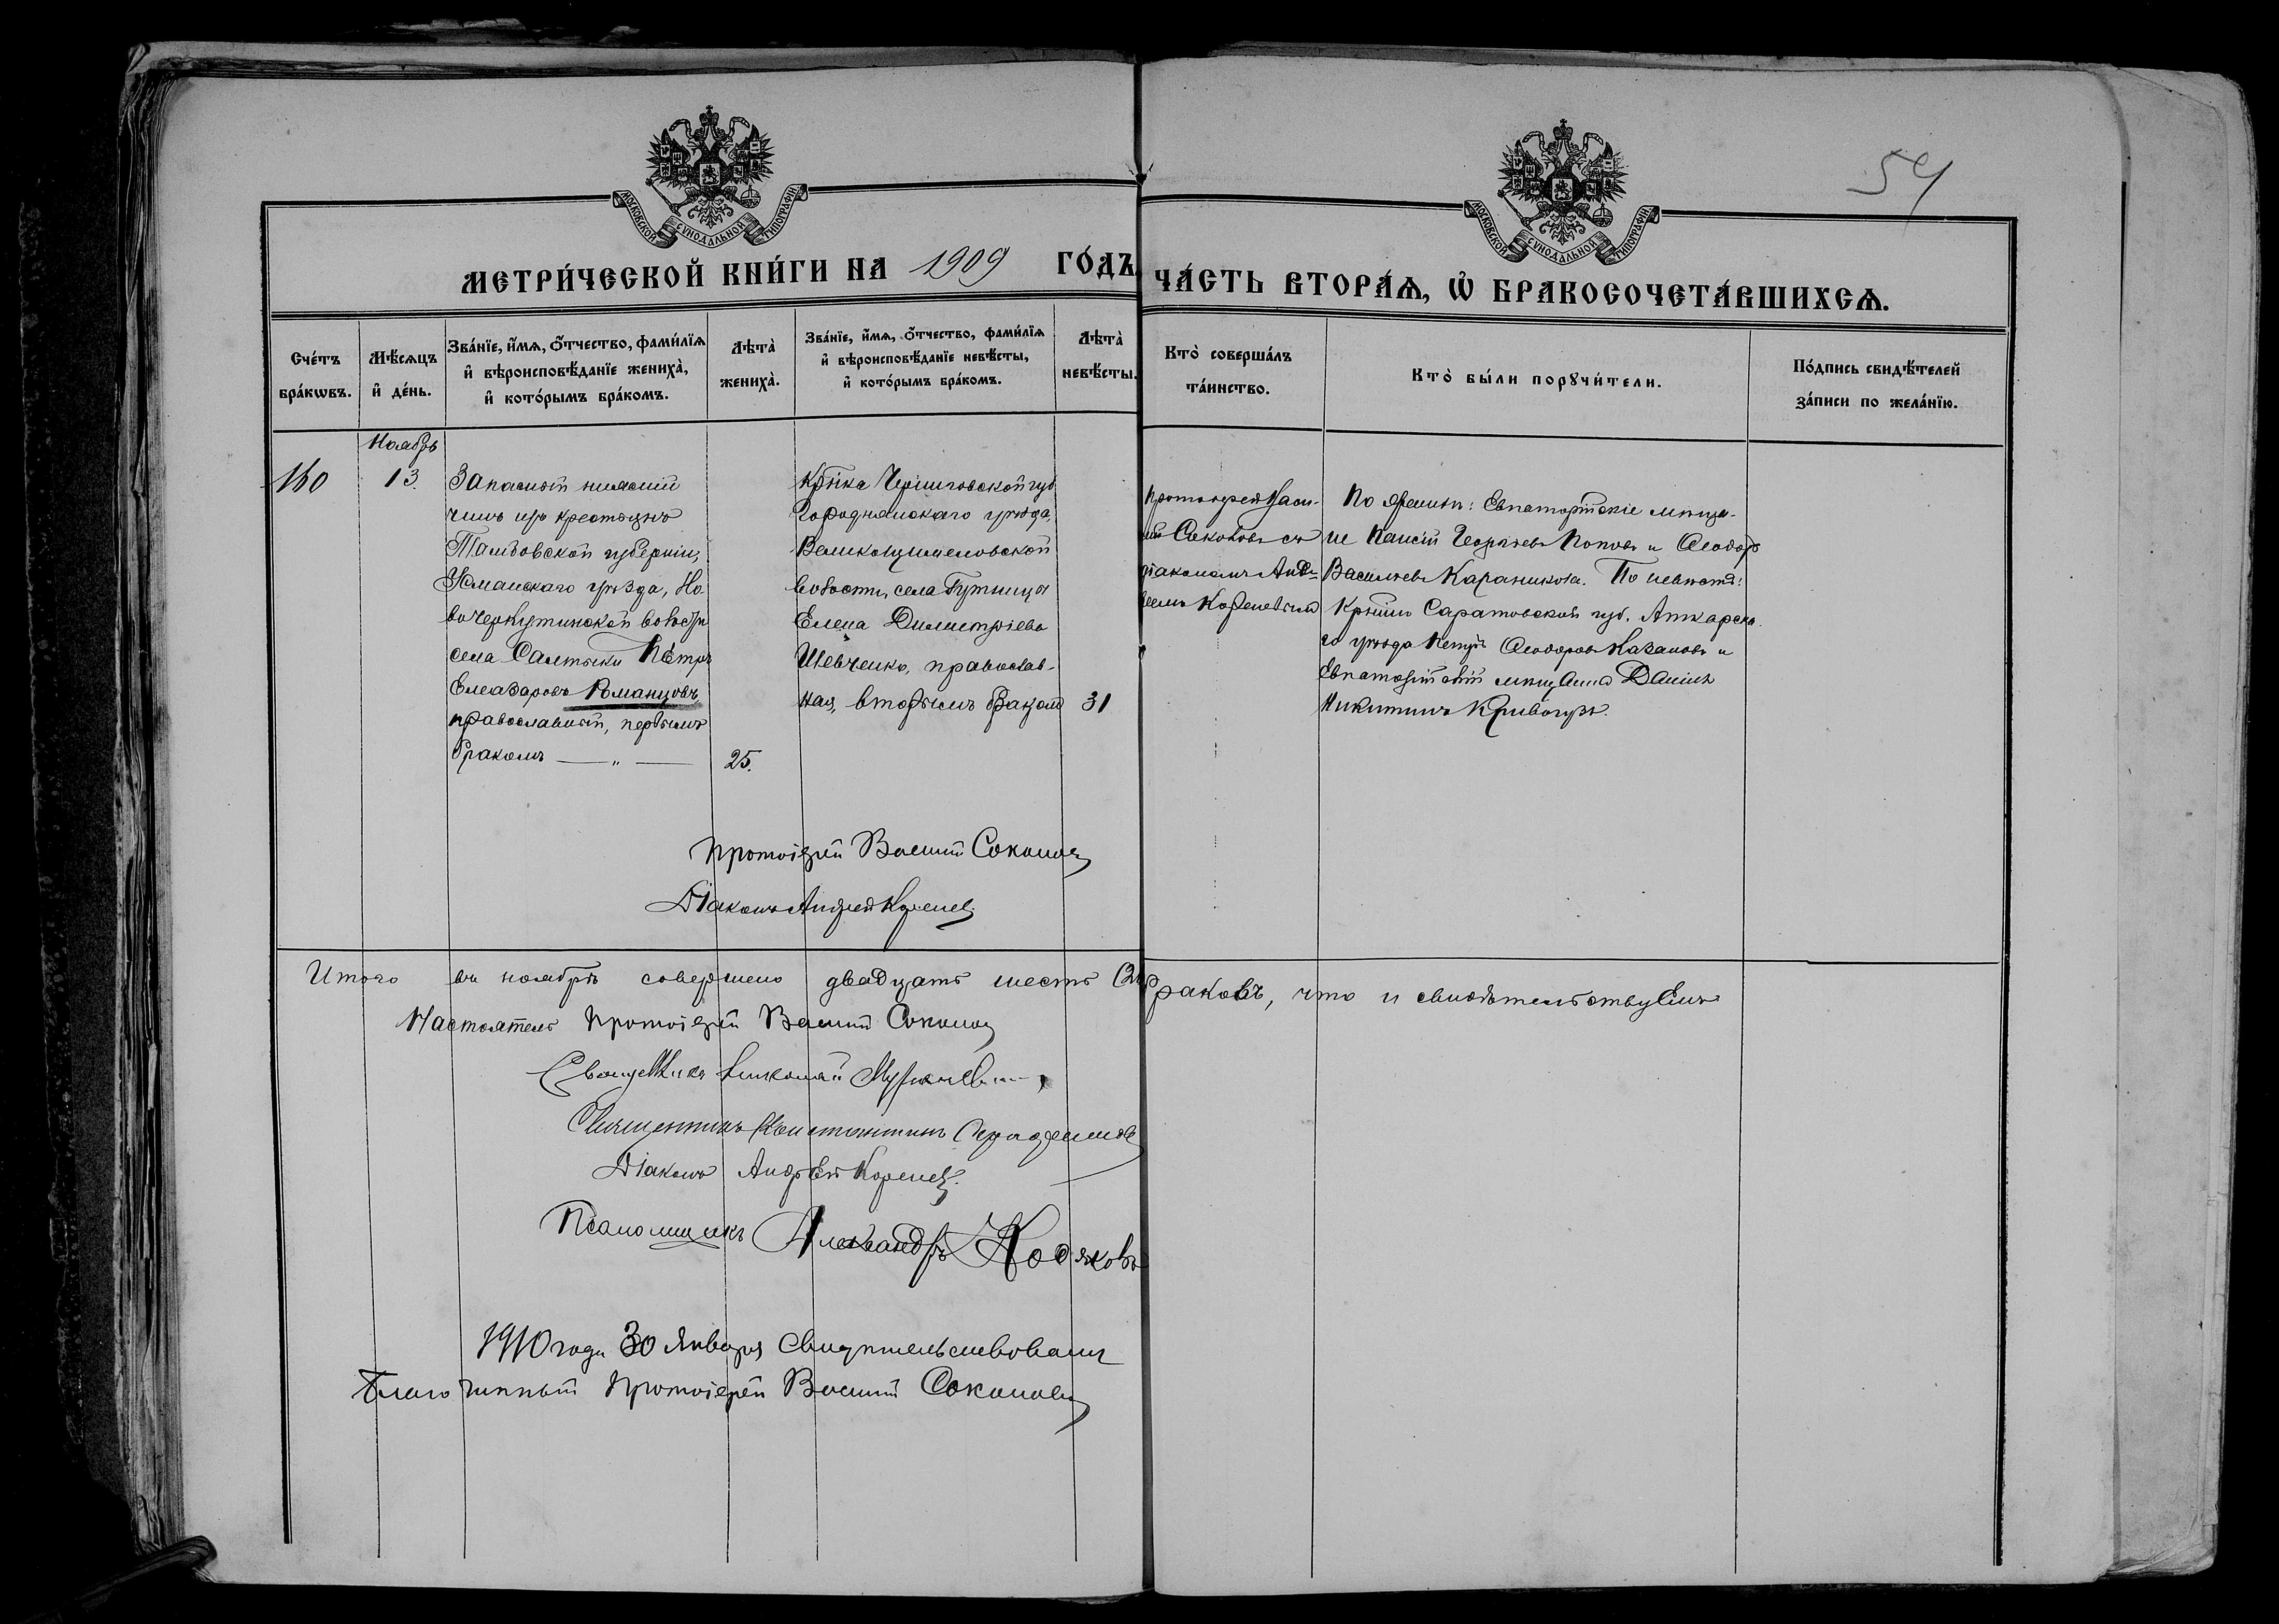 54
МОСКОВСКОЙ СѴНОДАЛЬНОЙ ТИПОГРАФІИ
МОСКОВСКОЙ СѴНОДАЛЬНОЙ ТИПОГРАФІИ
МЕТРИ́ЧЕСКОЙ КНИ́ГИ НА 1909 ГО́ДЪ,
ЧА́СТЬ ВТОРА́Ѧ, Ѡ҆ БРАКОСОЧЕТА́ВШИХСѦ.
Сче́тъ
бра́кѡвъ.
Мѣ́сѧцъ
и҆ де́нь.
Зва́нїе, и҆́мѧ, ѻ҆́тчество, фами́лїѧ
и҆ вѣроисповѣ́данїе жениха̀,
и҆ кото́рымъ бра́комъ.
Лѣта̀
жениха̀.
Зва́нїе, и҆́мѧ, ѻ҆́тчество, фами́лїѧ
и҆ вѣроисповѣ́данїе невѣ́сты,
и҆ кото́рымъ бра́комъ.
Лѣта̀
невѣ́сты.
Кто̀ соверша́лъ
та́инство.
Кто̀ бы́ли порꙋчи́тели.
По́дпись свидѣ́телей
за́писи по жела́нїю.
160
Ноябрь
13.
Запасной нижній
чинъ изъ крестьянъ
Тамбовской губерніи,
Усманскаго уѣзда, Но
вочеркутинской волости
села Салтыки Петръ
Елеазаровъ Романцовъ
православный, первымъ
бракомъ — „ —
25.
Кр̃нка Черниговской губ.
Городнянскаго уѣзда,
Великощимеловской
волости, села
Елена Димитріева
Шевченко, православ-
ная, вторымъ бракомъ
31
Протоіерей Васи-
лій Соколовъ съ
діакономъ Андре-
емъ Кореневымъ
По женихѣ: Евпаторійскіе мѣща-
не Паисій Георгіевъ Поповъ и Ѳеодоръ
Васильевъ Караникола. По невѣстѣ:
Кр̃нинъ Саратовской губ. Аткарска-
го уѣзда Петръ Ѳеодоровъ Казаковъ и
Евпаторійскій мѣщанинъ Даніилъ
Никитинъ Кривогузъ.
Протоіерей Василій Соколовъ
Діаконъ Андрей Кореневъ.
Итого въ ноябрѣ совершено двадцать шесть (26)
браковъ, что и свидѣтельствуемъ
Настоятель Протоіерей Василій Соколовъ
Священникъ Николай
Священникъ Константинъ
Діаконъ Андрей Кореневъ.
Псаломщикъ Александръ Ходяковъ
1910 года 30 Января Свидѣтельствовалъ
Благочинный Протоіерей Василій Соколовъ